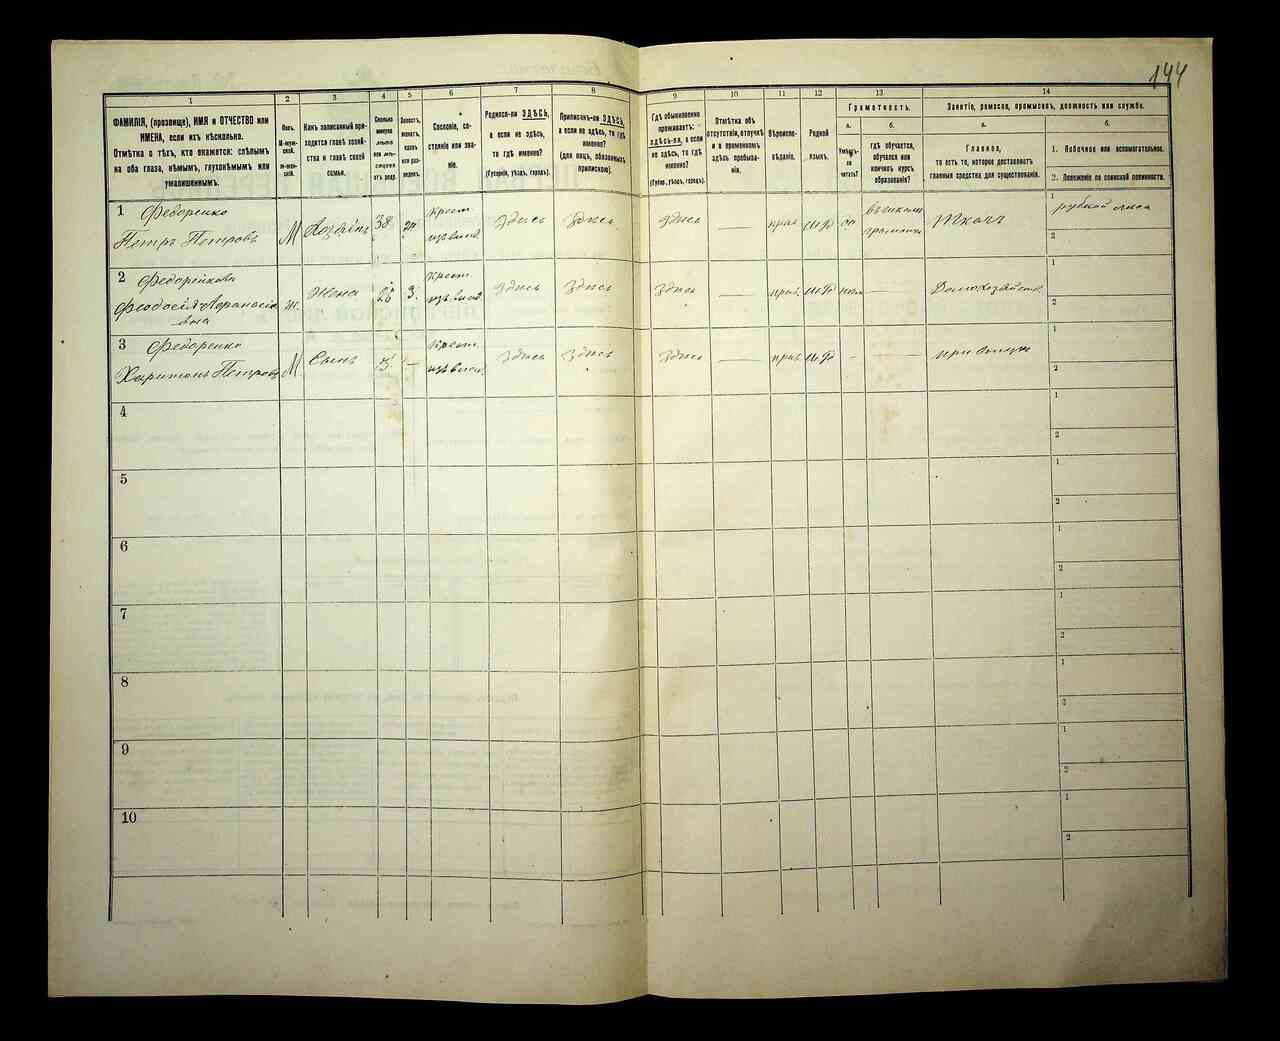 144
1
ФАМИЛІЯ, (прозвище), ИМЯ и ОТЧЕСТВО или
ИМЕНА, если ихъ нѣсколько.
Отмѣтка о тѣхъ, кто окажется: слѣпымъ
на оба глаза, нѣмымъ, глухонѣмымъ или
умалишеннымъ.
2
Полъ.
М-муж-
ской.
ж-жен-
скій.
3
Какъ записанный при-
ходится главѣ хозяй-
ства и главѣ своей
семьи.
4
Сколько
минуло
лѣтъ
или мѣ-
сяцевъ
отъ роду.
5
Холостъ,
женатъ,
вдовъ
или раз-
веденъ.
6
Сословіе, со-
стояніе или зва-
ніе.
7
Родился-ли ЗДѢСЬ,
а если не здѣсь,
то гдѣ именно?
(Губернія, уѣздъ, городъ).
8
Приписанъ-ли ЗДѢСЬ,
а если не здѣсь, то гдѣ
именно?
(для лицъ, обязанныхъ
припискою).
9
Гдѣ обыкновенно
проживаетъ:
здѣсь-ли, а если
не здѣсь, то гдѣ
именно?
(Губерн., уѣздъ, городъ).
10
Отмѣтка объ
отсутствіи, отлучкѣ
и о временномъ
здѣсь пребыва-
ніи.
11
Вѣроиспо-
вѣданіе.
12
Родной
языкъ.
13
Грамотность.
а.
Умѣетъ-
ли
читать?
б.
гдѣ обучается,
обучался или
кончилъ курсъ
образованія?
14
Занятіе, ремесло, промыселъ, должность или служба.
а.
Главное,
то есть то, которое доставляетъ
главныя средства для существованія.
б.
1. Побочное или вспомогательное.
2. Положеніе по воинской повинности.
1 Федоренко
Петръ Петровъ
М
Хозяинъ
38
Крест.
изъ влад.
Здѣсь
Здѣсь
Здѣсь
—
прав.
1
рубкой лѣса
2
Ткачъ
2 Федоренкова
Феодосія Афанасіе
вна
ж.
Жена
26
З.
Крест.
изъ влад.
Здѣсь
Здѣсь
Здѣсь
—
прав.
—
Домохозяйств.
1
2
3 Федоренко
Харитонъ Петровъ
М
Сынъ
5
—
Крест.
изъ влад.
Здѣсь
Здѣсь
Здѣсь
—
прав.
-
—
при отцѣ
1
2
4
1
2
5
1
2
6
1
2
7
1
2
8
1
2
9
1
2
10
1
2